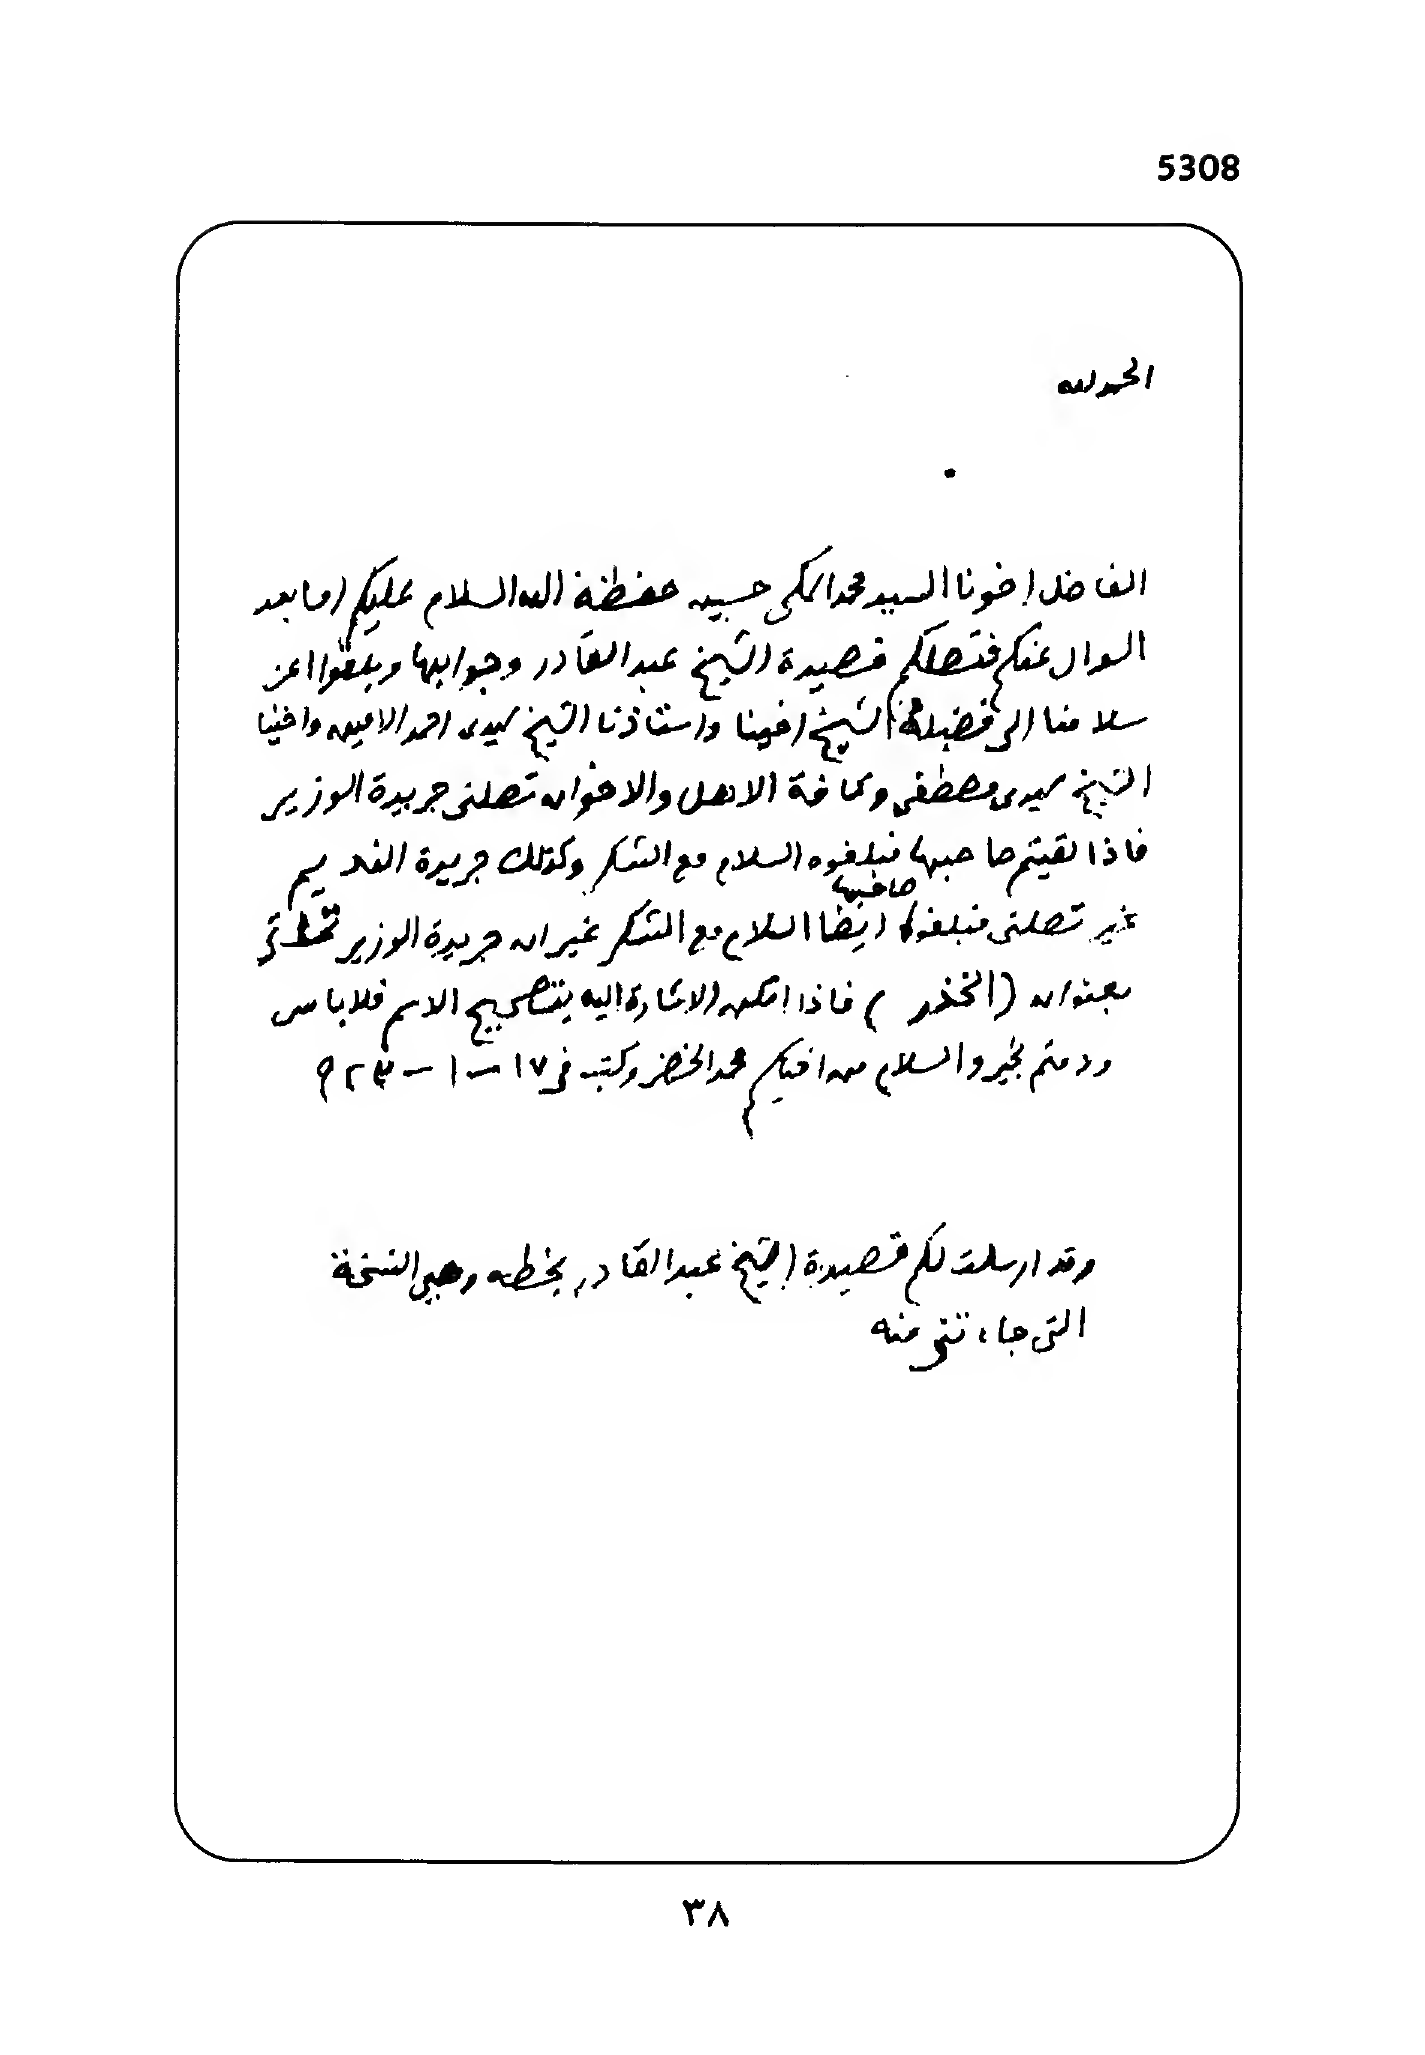 5308
الحمد لله
الفاضل اخونا السيد محمد المكي حسين حفظه الله السلام عليكم اما بعد
السوال عنكم فتصلكم قصيدة الشيخ عبد القادر وجوابها وبلغوا اعز
سلامنا الى فضيلة الشيخ اخينا واستاذنا الشيخ سيدى احمد الامين واخينا
الشيخ سيدى مصطفى وكافة الاهل والاخوان تصلنى جريدة الوزير
فاذا لقيتم صاحبها فبلغوه السلام مع الشكر وكذلك جريدة النديم
صاحبها
غير تصلنى فبلغوا ايضا السلام مع الشكر غير ان جريدة الوزير تأتى
بعنوان (الخذر ) فاذا امكن الاشارة اليه بتصحيح الاسم فلا باس
ودمتم بخير والسلام من اخيكم محمد الخضر وكتب فى ١٧ – ١ – ٢٣ م
وقد ارسلت لكم قصيدة الشيخ عبد القادر بخطه وهى النسخة
التى جاءتنى منه
٣٨